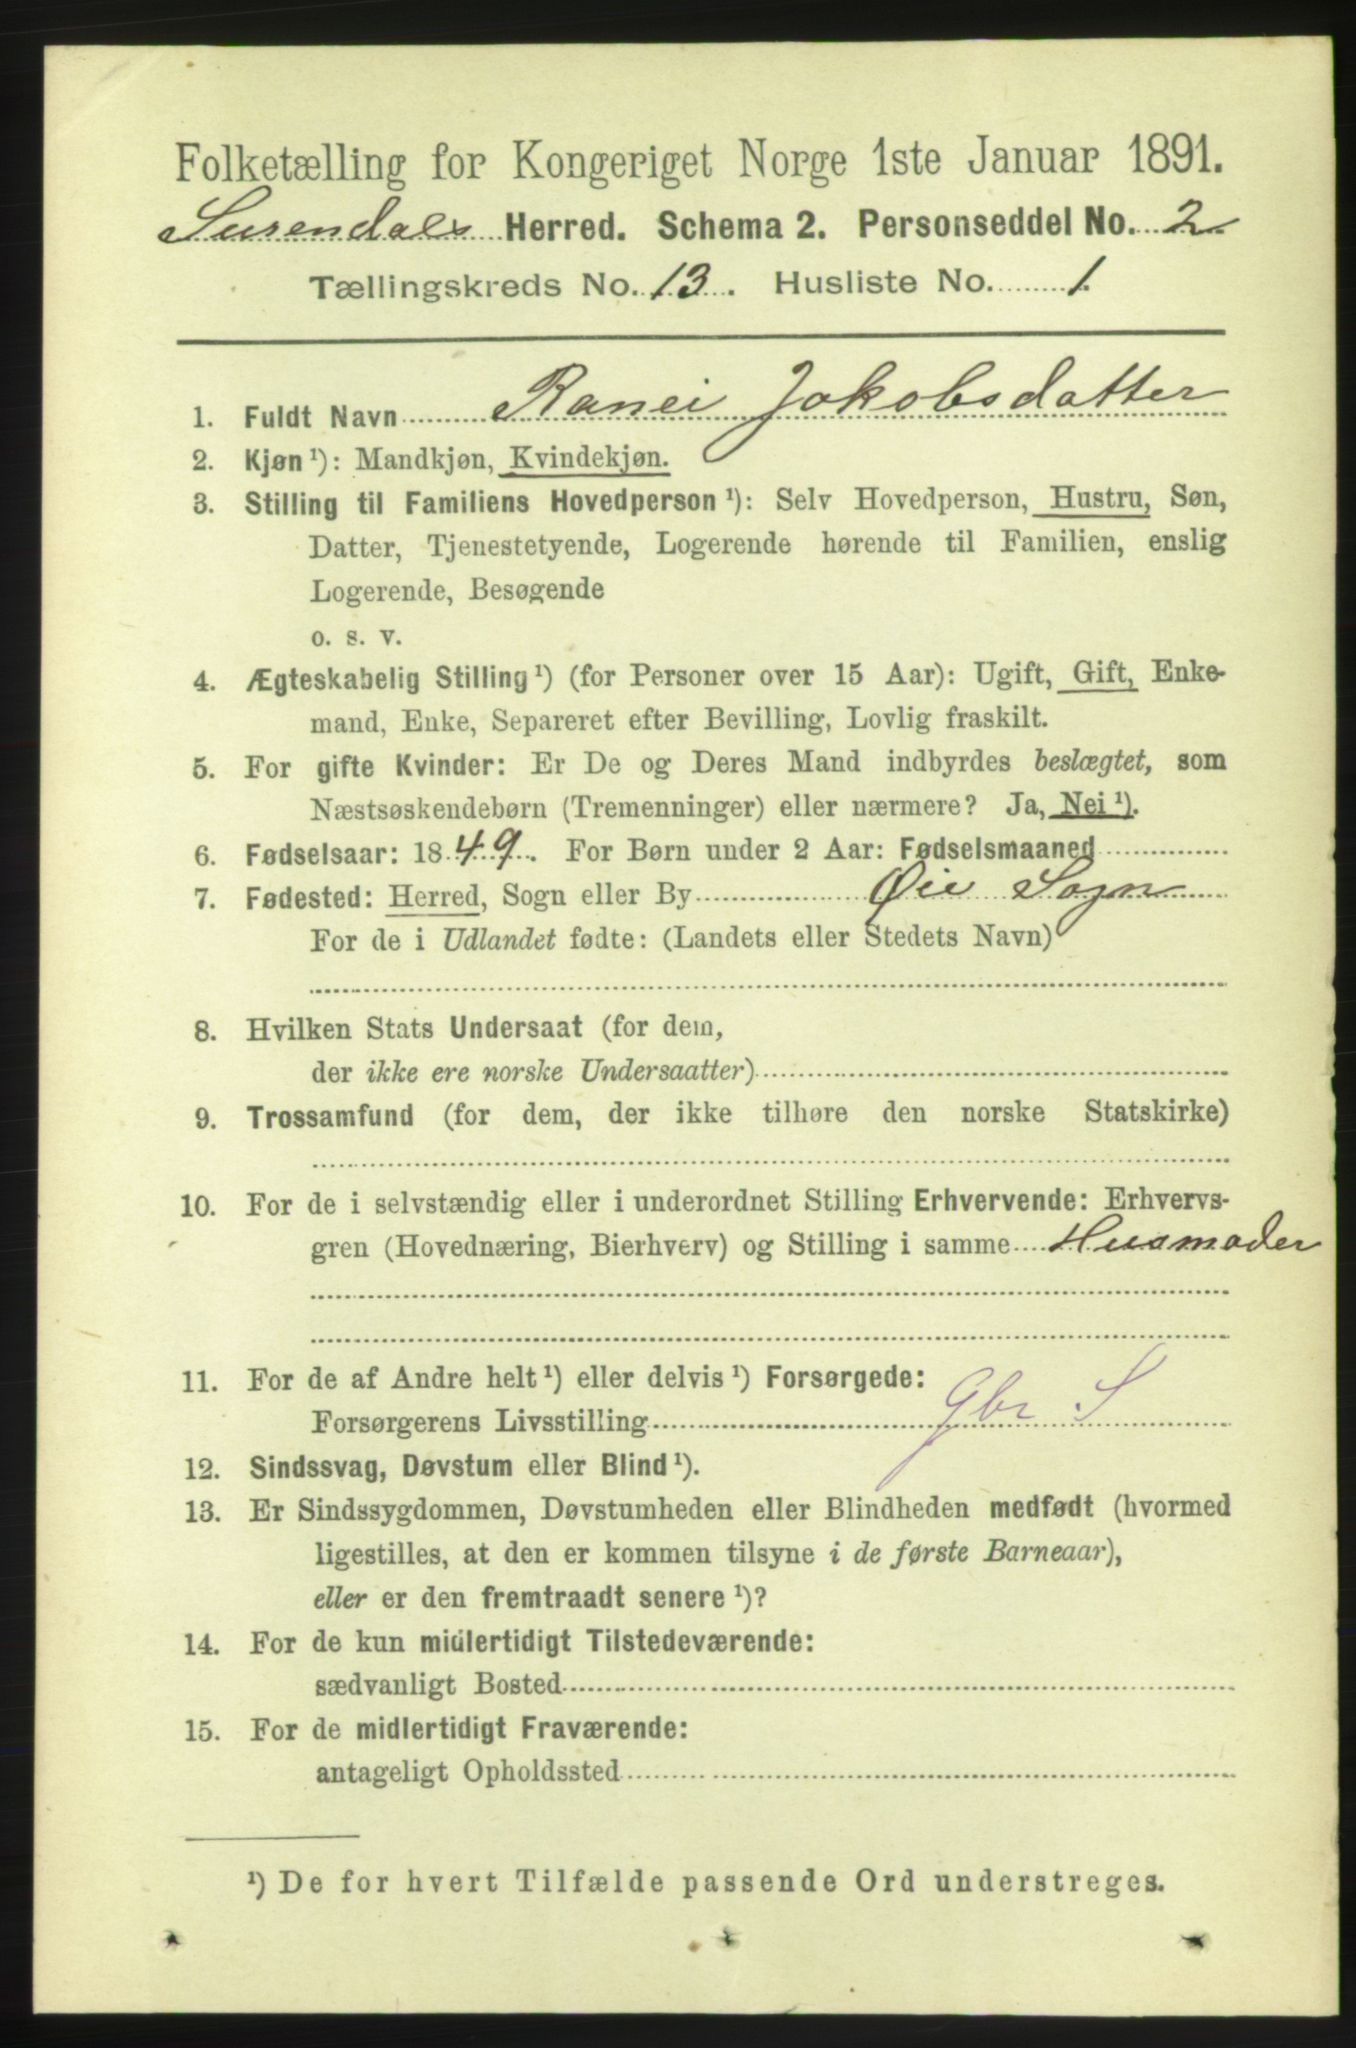 Folketælling for Kongeriget Norge 1ste Januar 1891.
Surendals Herred. Schema 2. Personseddel No. 2
Tællingskreds No. 13. Husliste No. 1.
1. Fuldt Navn Ranei Jakobsdatter
2. Kjøn ¹): Mandkjøn, Kvindekjøn.
3. Stilling til Familiens Hovedperson ¹): Selv Hovedperson, Hustru, Søn,
Datter, Tjenestetyende, Logerende hørende til Familien, enslig
Logerende, Besøgende
o. s. v.
4. Ægteskabelig Stilling ¹) (for Personer over 15 Aar): Ugift, Gift, Enke-
mand, Enke, Separeret efter Bevilling, Lovlig fraskilt.
5. For gifte Kvinder: Er De og Deres Mand indbyrdes beslægtet, som
Næstsøskendebørn (Tremenninger) eller nærmere? Ja, Nei ¹).
6. Fødselsaar: 1849. For Børn under 2 Aar: Fødselsmaaned
7. Fødested: Herred, Sogn eller By Øie Sogn
For de i Udlandet fødte: (Landets eller Stedets Navn)
8. Hvilken Stats Undersaat (for dem,
der ikke ere norske Undersaatter)
9. Trossamfund (for dem, der ikke tilhøre den norske Statskirke)
10. For de i selvstændig eller i underordnet Stilling Erhvervende: Erhvervs-
gren (Hovednæring, Bierhverv) og Stilling i samme Husmoder
11. For de af Andre helt ¹) eller delvis ¹) Forsørgede:
Forsørgerens Livsstilling Gbr S
12. Sindssvag, Døvstum eller Blind ¹).
13. Er Sindssygdommen, Døvstumheden eller Blindheden medfødt (hvormed
ligestilles, at den er kommen tilsyne i de første Barneaar),
eller er den fremtraadt senere ¹)?
14. For de kun midlertidigt Tilstedeværende:
sædvanligt Bosted
15. For de midlertidigt Fraværende:
antageligt Opholdssted
¹) De for hvert Tilfælde passende Ord understreges.